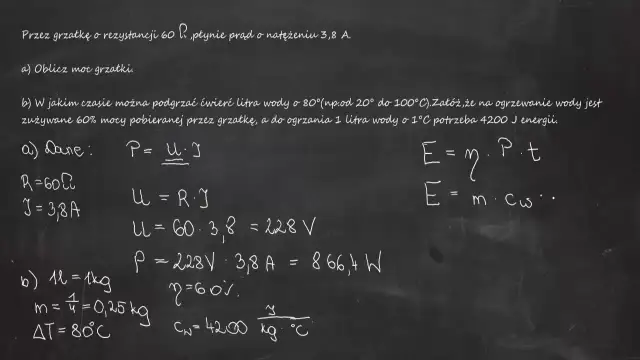 Przez grzałkę o rezystancji 60 Ω, płynie prąd o natężeniu 3,8 A.
a) Oblicz moc grzałki.
b) W jakim czasie można podgrzać ćwierć litra wody o 80°(np:od 20° do 100°C). Załóż,że na ogrzewanie wody jest
zużywane 60% mocy pobieranej przez grzałkę, a do ogrzania 1 litra wody o 1°C potrzeba 4200 J energii.
a) Dane: P = U · I
R = 60Ω
I = 3,8A
U = R · I
U = 60 · 3,8 = 228 V
P = 228V · 3,8A = 866,4 W
E = η · P · t
E = m · cw ··
b) 1l = 1kg
m = 1/4 = 0,25 kg
ΔT = 80°C
η = 60%
cw = 4200 J/kg · °C